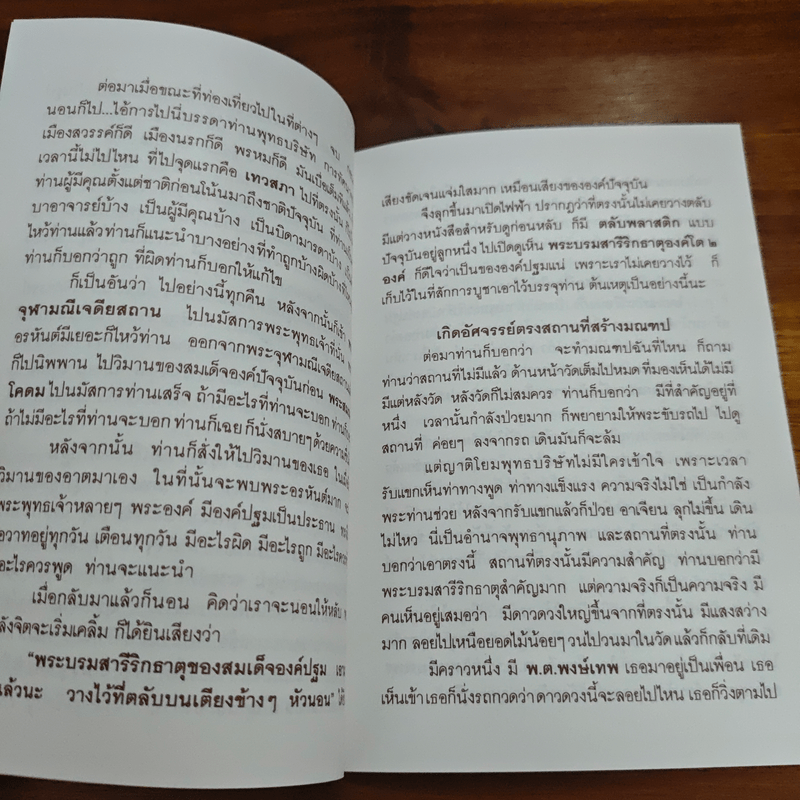 ต่อมาเมื่อขณะที่ท่องเที่ยวไปในที่ต่างๆ จบ
นอนก็ไป...ไอ้การไปนี่บรรดาท่านพุทธบริษัท
เมืองสวรรค์ก็ดี เมืองนรกก็ดี พรหมก็ดี มันเบื่อเต็มที
เวลานี้ไม่ไปไหน ที่ไปจุดแรกคือ เทวสภา ไปที่ตรงนั้น
ท่านผู้มีคุณตั้งแต่ชาติก่อนโน้นมาถึงชาติปัจจุบัน
บาอาจารย์บ้าง เป็นผู้มีคุณบ้าง เป็นบิดามารดาบ้าง
ไหว้ท่านแล้วท่านก็แนะนำบางอย่างที่ทำถูกบ้างผิดบ้าง
ท่านก็บอกว่าถูก ที่ผิดท่านก็บอกให้แก้ไข
ก็เป็นอันว่า ไปอย่างนี้ทุกคืน หลังจากนั้นก็เข้า
จุฬามณีเจดียสถาน ไปนมัสการพระพุทธเจ้าที่นั่น
อรหันต์มีเยอะก็ไหว้ท่าน ออกจากพระจุฬามณีเจดียสถาน
ก็ไปนิพพาน ไปวิมานของสมเด็จองค์ปัจจุบันก่อน
โคดม ไปนมัสการท่านเสร็จ ถ้ามีอะไรที่ท่านจะบอก ท่านก็
ถ้าไม่มีอะไรที่ท่านจะบอก ท่านก็เฉย ก็นั่งสบายๆ
หลังจากนั้น ท่านก็สั่งให้ไปวิมานของเธอ
วิมานของอาตมาเอง ในที่นั้นจะพบพระอรหันต์มาก
พระพุทธเจ้าหลายๆ พระองค์ มีองค์ปฐมเป็นประธาน
อวาทอยู่ทุกวัน เตือนทุกวัน มีอะไรผิด มีอะไรถูก
อะไรควรพูด ท่านจะแนะนำ
เมื่อกลับมาแล้วก็นอน คิดว่าเราจะนอนให้หลับ
ลังจิตจะเริ่มเคลิ้ม ก็ได้ยินเสียงว่า
“พระบรมสารีริกธาตุของสมเด็จองค์ปฐม
แล้วนะ วางไว้ที่ตลับบนเตียงข้างๆ หัวนอน”
เสียงชัดเจนแจ่มใสมาก เหมือนเสียงขององค์ปัจจุบัน
จึงลุกขึ้นมาเปิดไฟฟ้า ปรากฎว่าที่ตรงนั้นไม่เคยวางตลับ
มีแต่วางหนังสือสำหรับดูก่อนหลับ ก็มี ตลับพลาสติก แบบ
ปัจจุบันอยู่ลูกหนึ่ง ไปเปิดดูเห็น พระบรมสารีริกธาตุองค์โต ๒
องค์ ก็ดีใจว่าเป็นขององค์ปฐมแน่ เพราะเราไม่เคยวางไว้ ก็
เก็บไว้ในที่สักการบูชาเอาไว้บรรจุท่าน ต้นเหตุเป็นอย่างนี้นะ
เกิดอัศจรรย์ตรงสถานที่สร้างมณฑป
ต่อมาท่านก็บอกว่า จะทำมณฑปฉันที่ไหน ก็ถาม
ท่านว่าสถานที่ไม่มีแล้ว ด้านหน้าวัดเต็มไปหมด ที่มองเห็นได้ไม่มี
มีแต่หลังวัด หลังวัดก็ไม่สมควร ท่านก็บอกว่า มีที่สำคัญอยู่ที่
หนึ่ง เวลานั้นกำลังป่วยมาก ก็พยายามให้พระขับรถไป ไปดู
สถานที่ ค่อยๆ ลงจากรถ เดินมันก็จะล้ม
แต่ญาติโยมพุทธบริษัทไม่มีใครเข้าใจ เพราะเวลา
รับแขกเห็นท่าทางพูด ท่าทางแข็งแรง ความจริงไม่ใช่ เป็นกำลัง
พระท่านช่วย หลังจากรับแขกแล้วก็ป่วย อาเจียน ลุกไม่ขึ้น เดิน
ไม่ไหว นี่เป็นอำนาจพุทธานุภาพ และสถานที่ตรงนั้น ท่าน
บอกว่าเอาตรงนี้ สถานที่ตรงนั้นมีความสำคัญ ท่านบอกว่ามี
พระบรมสารีริกธาตุสำคัญมาก แต่ความจริงก็เป็นความจริง มี
คนเห็นอยู่เสมอว่า มีดาวดวงใหญ่ขึ้นจากที่ตรงนั้น มีแสงสว่าง
มาก ลอยไปเหนือยอดไม้น้อยๆ วนไปวนมาในวัด แล้วก็กลับที่เดิม
มีคราวหนึ่ง มี พ.ต.พงษ์เทพ เธอมาอยู่เป็นเพื่อน เธอ
เห็นเข้าเธอก็นั่งรถกวดว่าดาวดวงนี้จะลอยไปไหน เธอก็วิ่งตามไป